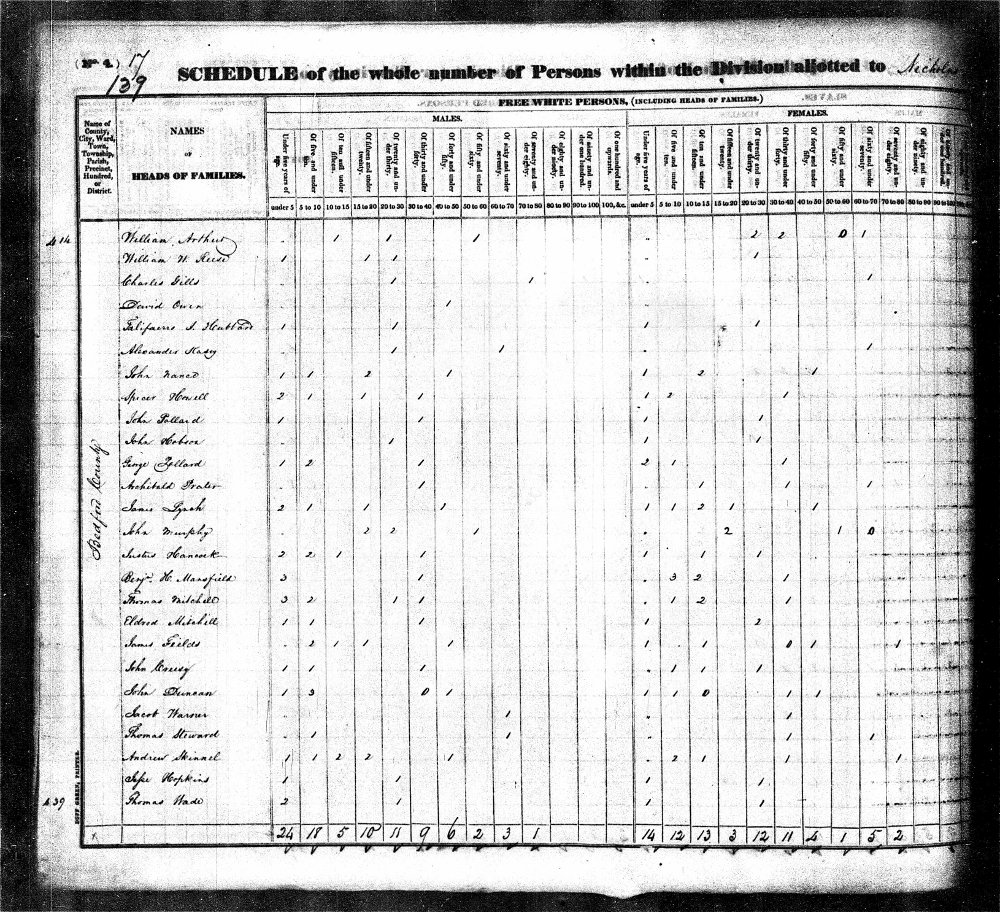 (No 4.) 17
139
SCHEDULE of the whole number of Persons within the Division allotted to Nicholas
Name of County, City, Ward, Town, Township, Parish, Precinct, Hundred, or District.
NAMES
OF
HEADS OF FAMILIES.
FREE WHITE PERSONS, (INCLUDING HEADS OF FAMILIES.)
MALES. FEMALES.
Under five years of age. Of five and under ten. Of ten and under fifteen. Of fifteen and under twenty. Of twenty and under thirty. Of thirty and under forty. Of forty and under fifty. Of fifty and under sixty. Of sixty and under seventy. Of seventy and under eighty. Of eighty and under ninety. Of ninety and under one hundred. Of one hundred and upwards. Under five years of age. Of five and under ten. Of ten and under fifteen. Of fifteen and under twenty. Of twenty and under thirty. Of thirty and under forty. Of forty and under fifty. Of fifty and under sixty. Of sixty and under seventy. Of seventy and under eighty. Of eighty and under ninety.
under 5 5 to 10 10 to 15 15 to 20 20 to 30 30 to 40 40 to 50 50 to 60 60 to 70 70 to 80 80 to 90 90 to 100 100, &c. under 5 5 to 10 10 to 15 15 to 20 20 to 30 30 to 40 40 to 50 50 to 60 60 to 70 70 to 80 80 to 90
414 William Arthur 1 1 1 2 2 0 1
William W. Reese 1 1 1 1
Charles Gills 1 1 1
David Owen 1
Talifaerro J. Hubbard 1 1 1 1
Alexander Kasey 1 1 1
John Nance 1 1 2 1 1 2 1
Spicer Howell 2 1 1 1 1 2 1
John Pollard 1 1 1 1
John Hobson 1 1 1
George Pollard 1 2 1 2 1 1
Archibald Prater 1 1 1 1
James Lynch 2 1 1 1 1 1 2 1 1
John Murphy 2 2 1 2 1 0
Justus Hancock 2 2 1 1 1 1 1
Benj. H. Mansfield 3 1 3 2 1
Thomas Mitchell 3 2 1 1 1 2 1
Eldred Mitchell 1 1 1 1 2
James Fields 2 1 1 1 1 1 0 1 1
John Creesy 1 1 1 1 1 1
John Duncan 1 3 0 1 1 1 0 1 1
Jacob Warner 1 1
Thomas Steward 1 1 1 1
Andrew Skinnel 1 1 2 2 1 2 1 1 1
Jesse Hopkins 1 1 1 1
439 Thomas Wade 2 1 1 1
24 18 5 10 11 9 6 2 3 1 14 12 13 3 12 11 4 1 5 2
Bedford County
DUFF GREEN, PRINTER.